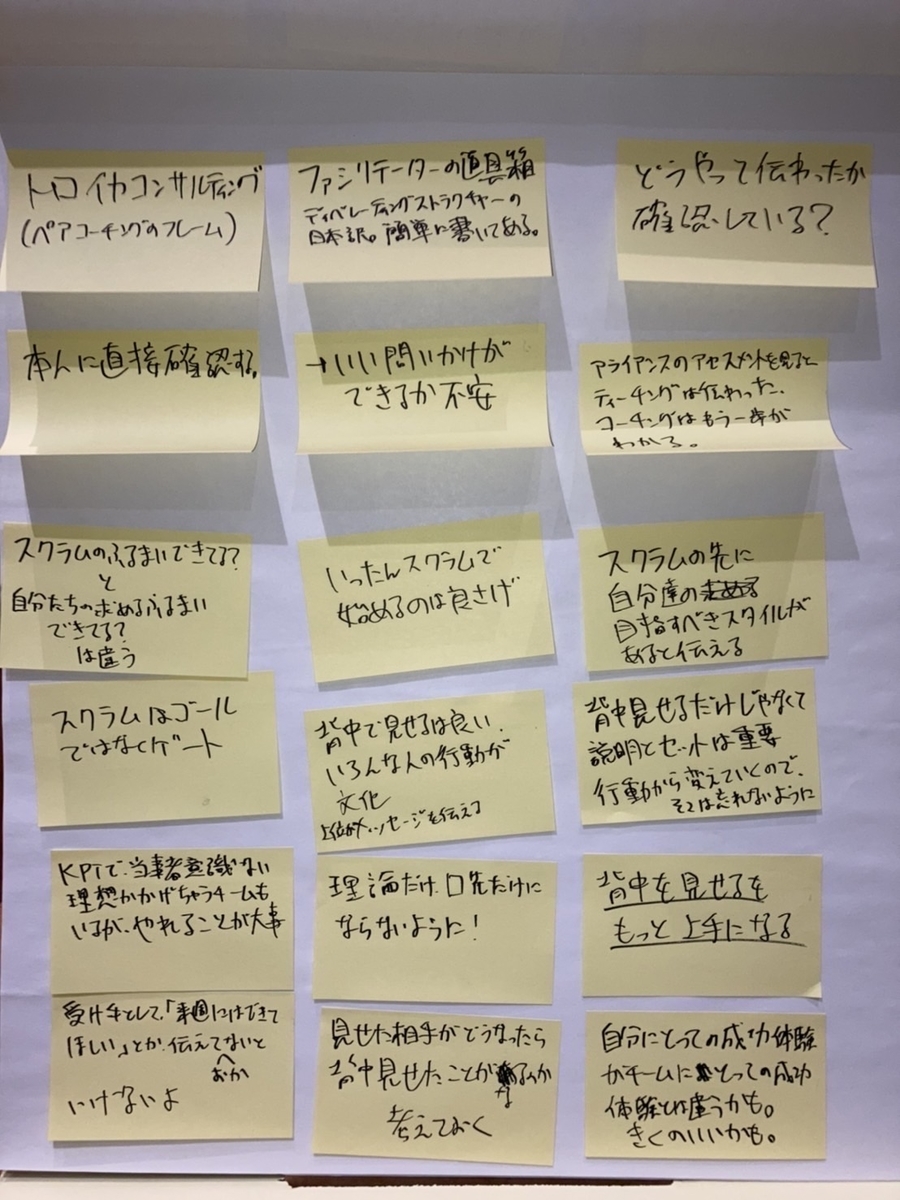 トロイカコンサルティング
(ペアコーチングのフレーム)
ファシリテーターの道具箱
ディベレーティングストラクチャーの
日本訳。簡単に書いてある。
どうやって伝わったか
確認している？
本人に直接確認する。
→いい問いかけが
できるか不安
アライアンスのアセスメントを見ると
ティーチングは伝わった、
コーチングはもう一歩が
わかる。
スクラムのふるまいできてる？
と
自分たちの求めるふるまい
できてる？
は違う
いったんスクラムで
始めるのは良さげ
スクラムの先に
自分達の
目指すべきスタイルが
あると伝える
スクラムはゴール
ではなくゲート
背中で見せるは良い、
いろんな人の行動が
文化
上位がメッセージを伝える
背中見せるだけじゃなくて
説明とセットは重要
行動から変えていくので、
そこは忘れないように
KPTで、当事者意識ない
理想かかげちゃうチームも
いるが、やれることが大事
理論だけ、口先だけに
ならないように！
背中を見せるを
もっと上手になる
受け手として、「来週にはできて
ほしい」とか、伝えておかないと
いけないよ
見せた相手がどうなったら
背中見せたことになるのか
考えておく
自分にとっての成功体験
がチームにとっての成功
体験とは違うかも。
きくのいいかも。